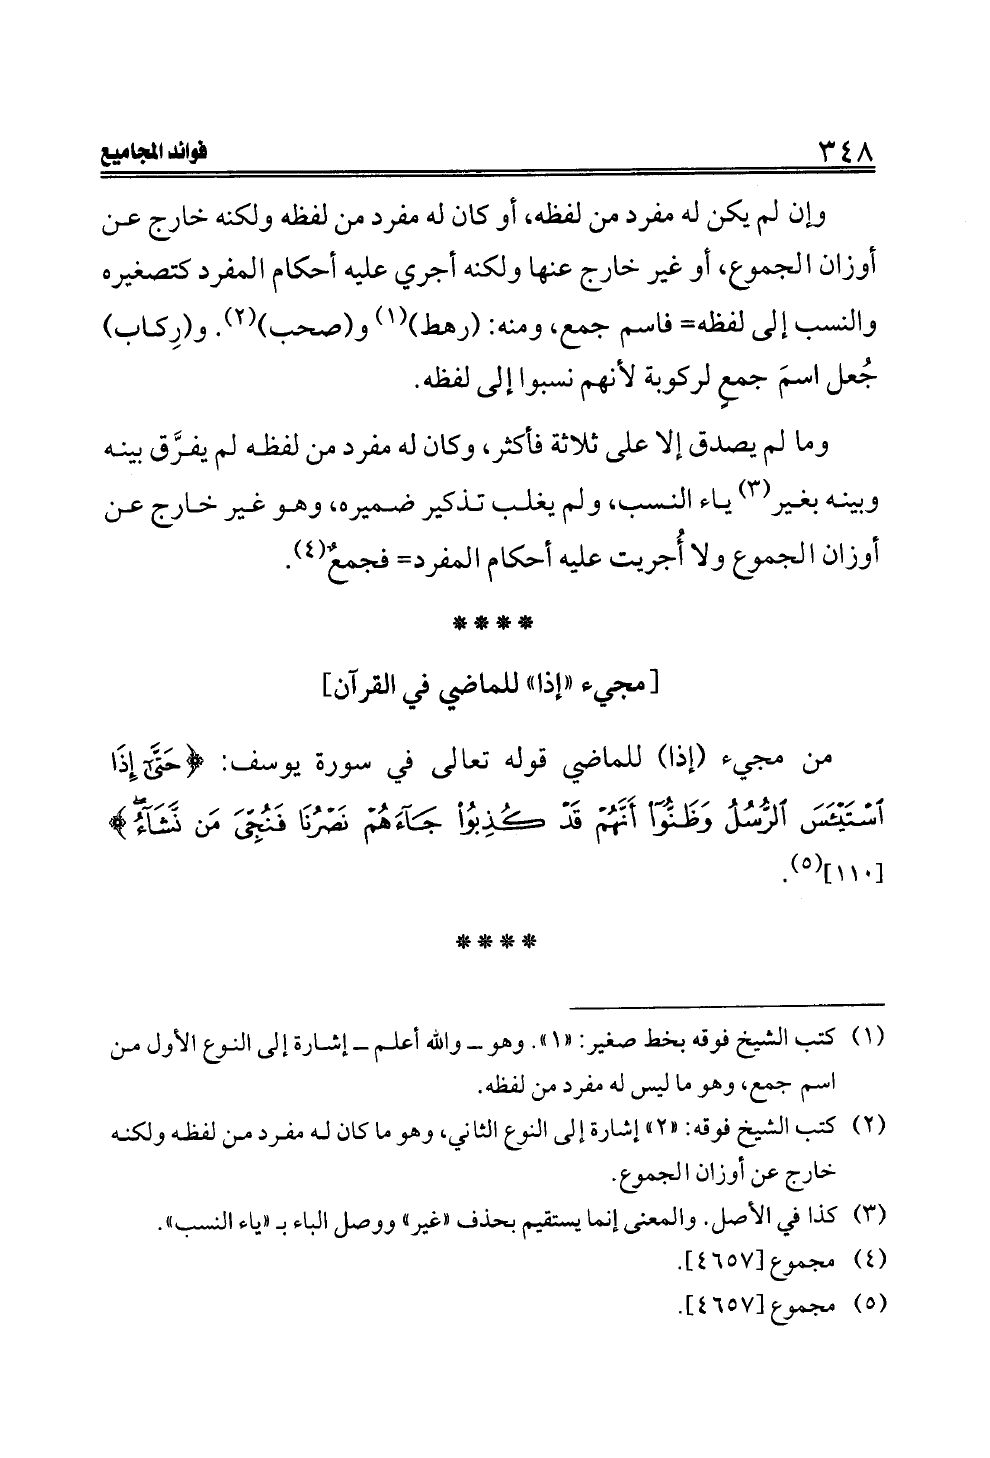 ٣٤٨ فوائد المجاميع
وإن لم يكن له مفرد من لفظه، أو كان له مفرد من لفظه ولكنه خارج عن
أوزان الجموع، أو غير خارج عنها ولكنه أجري عليه أحكام المفرد كتصغيره
والنسب إلى لفظه= فاسم جمع، ومنه: (رهط)(١) و(صحب)(٢). و(رِكاب)
جُعل اسمَ جمعٍ لركوبة لأنهم نسبوا إلى لفظه.
وما لم يصدق إلا على ثلاثة فأكثر، وكان له مفرد من لفظه لم يفرَّق بينه
وبينه بغير(٣) ياء النسب، ولم يغلب تذكير ضميره، وهو غير خارج عن
أوزان الجموع ولا أُجريت عليه أحكام المفرد= فجمعٌ(٤).
****
[مجيء «إذا» للماضي في القرآن]
من مجيء (إذا) للماضي قوله تعالى في سورة يوسف: ﴿حَتَّىٰٓ إِذَا
ٱسْتَيْـَٔسَ ٱلرُّسُلُ وَظَنُّوٓا۟ أَنَّهُمْ قَدْ كُذِبُوا۟ جَآءَهُمْ نَصْرُنَا فَنُجِّىَ مَن نَّشَآءُ ۖ﴾
[١١٠](٥).
****
(١) كتب الشيخ فوقه بخط صغير: «١». وهو ـ والله أعلم ـ إشارة إلى النوع الأول من
اسم جمع، وهو ما ليس له مفرد من لفظه.
(٢) كتب الشيخ فوقه: «٢» إشارة إلى النوع الثاني، وهو ما كان له مفرد من لفظه ولكنه
خارج عن أوزان الجموع.
(٣) كذا في الأصل. والمعنى إنما يستقيم بحذف «غير» ووصل الباء بـ «ياء النسب».
(٤) مجموع [٤٦٥٧].
(٥) مجموع [٤٦٥٧].